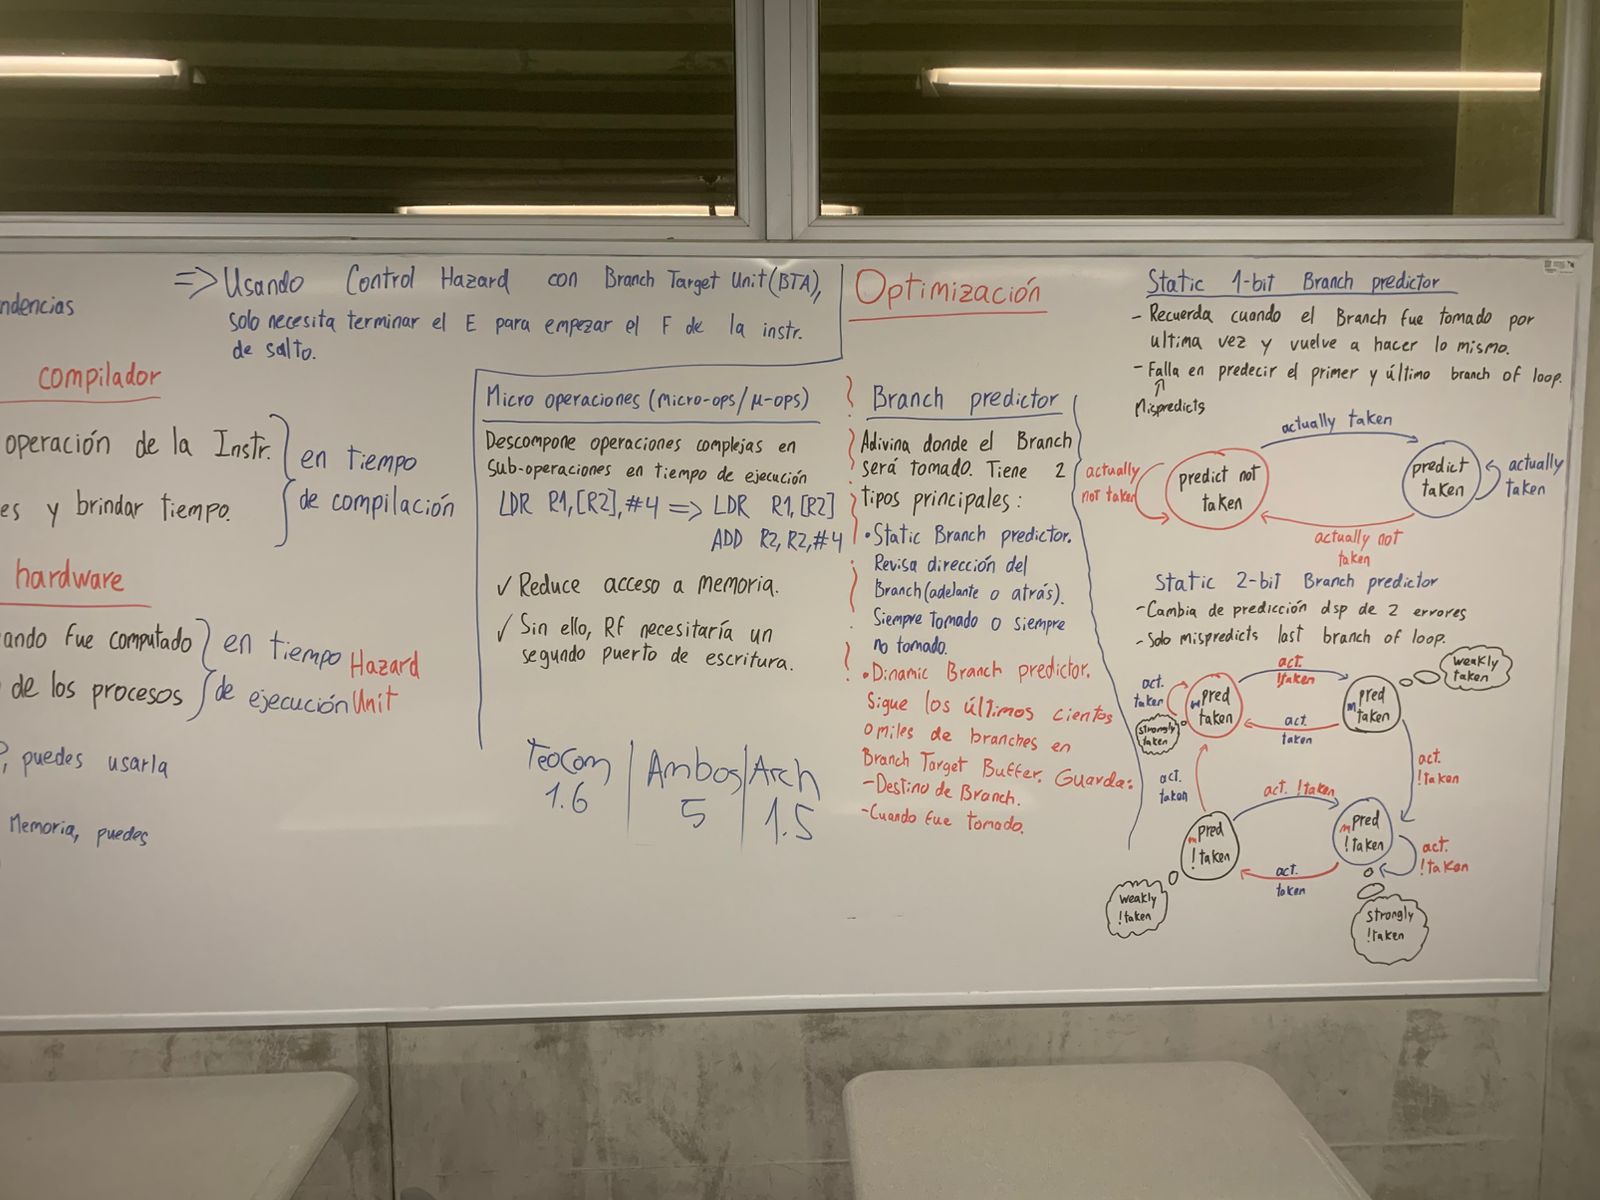 => Usando Control Hazard con Branch Target Unit (BTA),
solo necesita terminar el E para empezar el F de la instr.
de salto.
ndencias
compilador
operación de la Instr.
es y brindar tiempo.
en tiempo
de compilación
hardware
ando fue computado
de los procesos
en tiempo
de ejecución
Hazard
Unit
, puedes usarla
Memoria, puedes
Micro operaciones (micro-ops/μ-ops)
Descompone operaciones complejas en
sub-operaciones en tiempo de ejecución
LDR R1,[R2],#4 => LDR R1,[R2]
ADD R2,R2,#4
✓ Reduce acceso a memoria.
✓ Sin ello, RF necesitaría un
segundo puerto de escritura.
TeoCom | Ambos | Arch
1.6 | 5 | 1.5
Optimización
Branch predictor
Adivina donde el Branch
será tomado. Tiene 2
tipos principales:
• Static Branch predictor.
Revisa dirección del
Branch (adelante o atrás).
Siempre tomado o siempre
no tomado.
• Dinamic Branch predictor.
Sigue los últimos cientos
o miles de branches en
Branch Target Buffer. Guarda:
- Destino de Branch.
- Cuando fue tomado.
Static 1-bit Branch predictor
- Recuerda cuando el Branch fue tomado por
ultima vez y vuelve a hacer lo mismo.
- Falla en predecir el primer y último branch of loop.
Mispredicts
actually taken
actually
not taken
predict not
taken
predict
taken
actually
taken
actually not
taken
Static 2-bit Branch predictor
- Cambia de predicción dsp de 2 errores
- Solo mispredicts last branch of loop.
act.
!taken
weakly
taken
act.
taken
pred
taken
pred
taken
strongly
taken
act.
taken
act.
!taken
act.
taken
act. !taken
pred
!taken
pred
!taken
act.
!taken
act.
taken
weakly
!taken
strongly
!taken